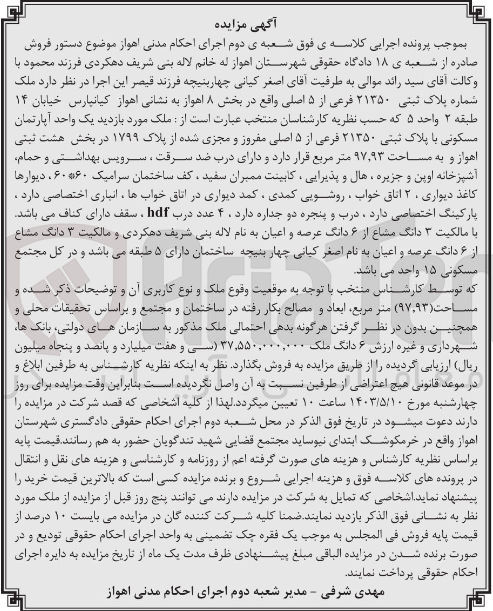 آگهی مزایده
بموجب پرونده اجرایی کلاسه ی فوق شعبه ی دوم اجرای احکام مدنی اهواز موضوع دستور فروش
صادره از شعبه ی ۱۸ دادگاه حقوقی شهرستان اهواز له خانم لاله بنی شریف دهکردی فرزند محمود با
وکالت آقای سید رائد موالی به طرفیت آقای اصغر کیانی چهاربنیچه فرزند قیصر این اجرا در نظر دارد ملک
شماره پلاک ثبتی ۲۱۳۵۰ فرعی از ۵ اصلی واقع در بخش ۸ اهواز به نشانی اهواز کیانپارس خیابان ۱۴
طبقه ۲ واحد ۵ که حسب نظریه کارشناسان منتخب عبارت است از : ملک مورد بازدید یک واحد آپارتمان
مسکونی با پلاک ثبتی ۲۱۳۵۰ فرعی از ۵ اصلی مفروز و مجزی شده از پلاک ۱۷۹۹ در بخش هشت ثبتی
اهواز و به مساحت ۹۷,۹۳ متر مربع قرار دارد و دارای درب ضد سرقت ، سرویس بهداشتی و حمام،
آشپزخانه اوپن و جزیره ، هال و پذیرایی ، کابینت ممبران سفید ، کف ساختمان سرامیک ۶۰*۶۰ ، دیوارها
کاغذ دیواری ، ۲ اتاق خواب ، روشویی کمدی ، کمد دیواری در اتاق خواب ها ، انباری اختصاصی دارد ،
پارکینگ اختصاصی دارد ، درب و پنجره دو جداره دارد ، ۴ عدد درب hdf ، سقف دارای کناف می باشد.
با مالکیت ۳ دانگ مشاع از ۶ دانگ عرصه و اعیان به نام لاله بنی شریف دهکردی و مالکیت ۳ دانگ مشاع
از ۶ دانگ عرصه و اعیان به نام اصغر کیانی چهار بنیچه ساختمان دارای ۵ طبقه می باشد و در کل مجتمع
مسکونی ۱۵ واحد می باشد.
که توسط کارشناس منتخب با توجه به موقعیت وقوع ملک و نوع کاربری آن و توضیحات ذکر شده و
مساحت(۹۷,۹۳) متر مربع، ابعاد و مصالح بکار رفته در ساختمان و مجتمع و براساس تحقیقات محلی و
همچنین بدون در نظر گرفتن هرگونه بدهی احتمالی ملک مذکور به سازمان های دولتی، بانک ها،
شهرداری و غیره ارزش ۶ دانگ ملک ۳۷,۵۵۰,۰۰۰,۰۰۰ (سی و هفت میلیارد و پانصد و پنجاه میلیون
ریال) ارزیابی گردیده را از طریق مزایده به فروش بگذارد. نظر به اینکه نظریه کارشناس به طرفین ابلاغ و
در موعد قانونی هیچ اعتراضی از طرفین نسبت به آن واصل نگردیده است بنابراین وقت مزایده برای روز
چهارشنبه مورخ ۱۴۰۳/۵/۱۰ ساعت ۱۰ تعیین میگردد.لهذا از کلیه اشخاصی که قصد شرکت در مزایده را
دارند دعوت میشود در تاریخ فوق الذکر در محل شعبه دوم اجرای احکام حقوقی دادگستری شهرستان
اهواز واقع در خرمکوشک ابتدای نیوساید مجتمع قضایی شهید تندگویان حضور به هم رسانند.قیمت پایه
براساس نظریه کارشناس و هزینه های صورت گرفته اعم از روزنامه و کارشناسی و هزینه های نقل و انتقال
در پرونده های کلاسه فوق و هزینه اجرایی شروع و برنده مزایده کسی است که بالاترین قیمت خرید را
پیشنهاد نماید.اشخاصی که تمایل به شرکت در مزایده دارند می توانند پنج روز قبل از مزایده از ملک مورد
نظر به نشانی فوق الذکر بازدید نمایند.ضمنا کلیه شرکت کننده گان در مزایده می بایست ۱۰ درصد از
قیمت پایه فروش فی المجلس به موجب یک فقره چک تضمینی به واحد اجرای احکام حقوقی تودیع و در
صورت برنده شدن در مزایده الباقی مبلغ پیشنهادی ظرف مدت یک ماه از تاریخ مزایده به دایره اجرای
احکام حقوقی پرداخت نمایند.
مهدی شرفی - مدیر شعبه دوم اجرای احکام مدنی اهواز